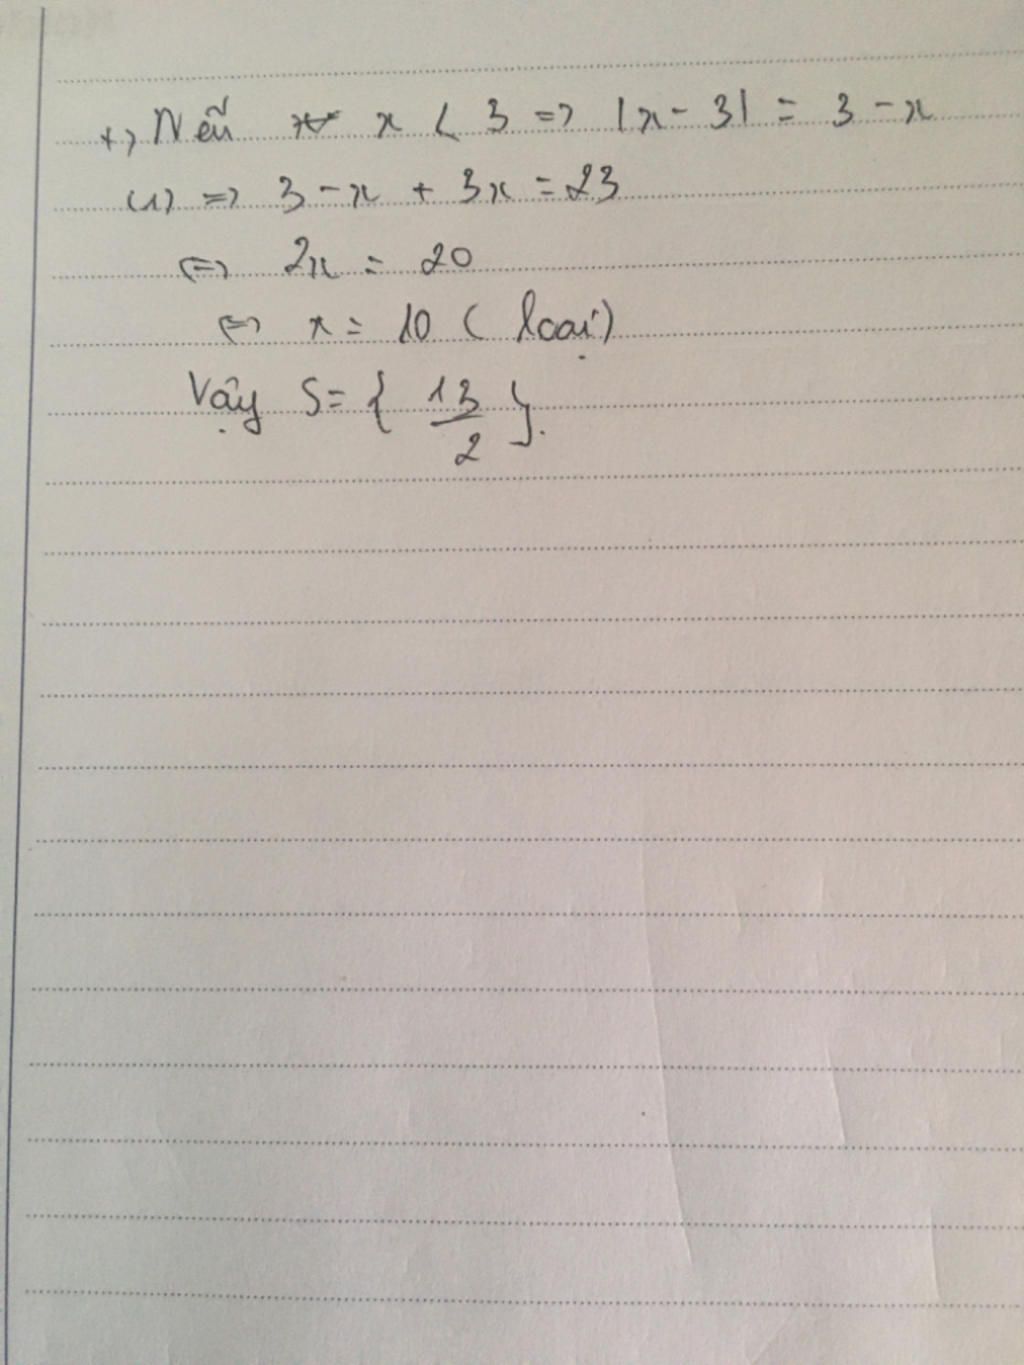 +, Nếu x < 3 => |x - 3| = 3 - x
(1) => 3 - x + 3x = 23
<=> 2x = 20
<=> x = 10 ( loại )
Vậy S = { 13/2 }.